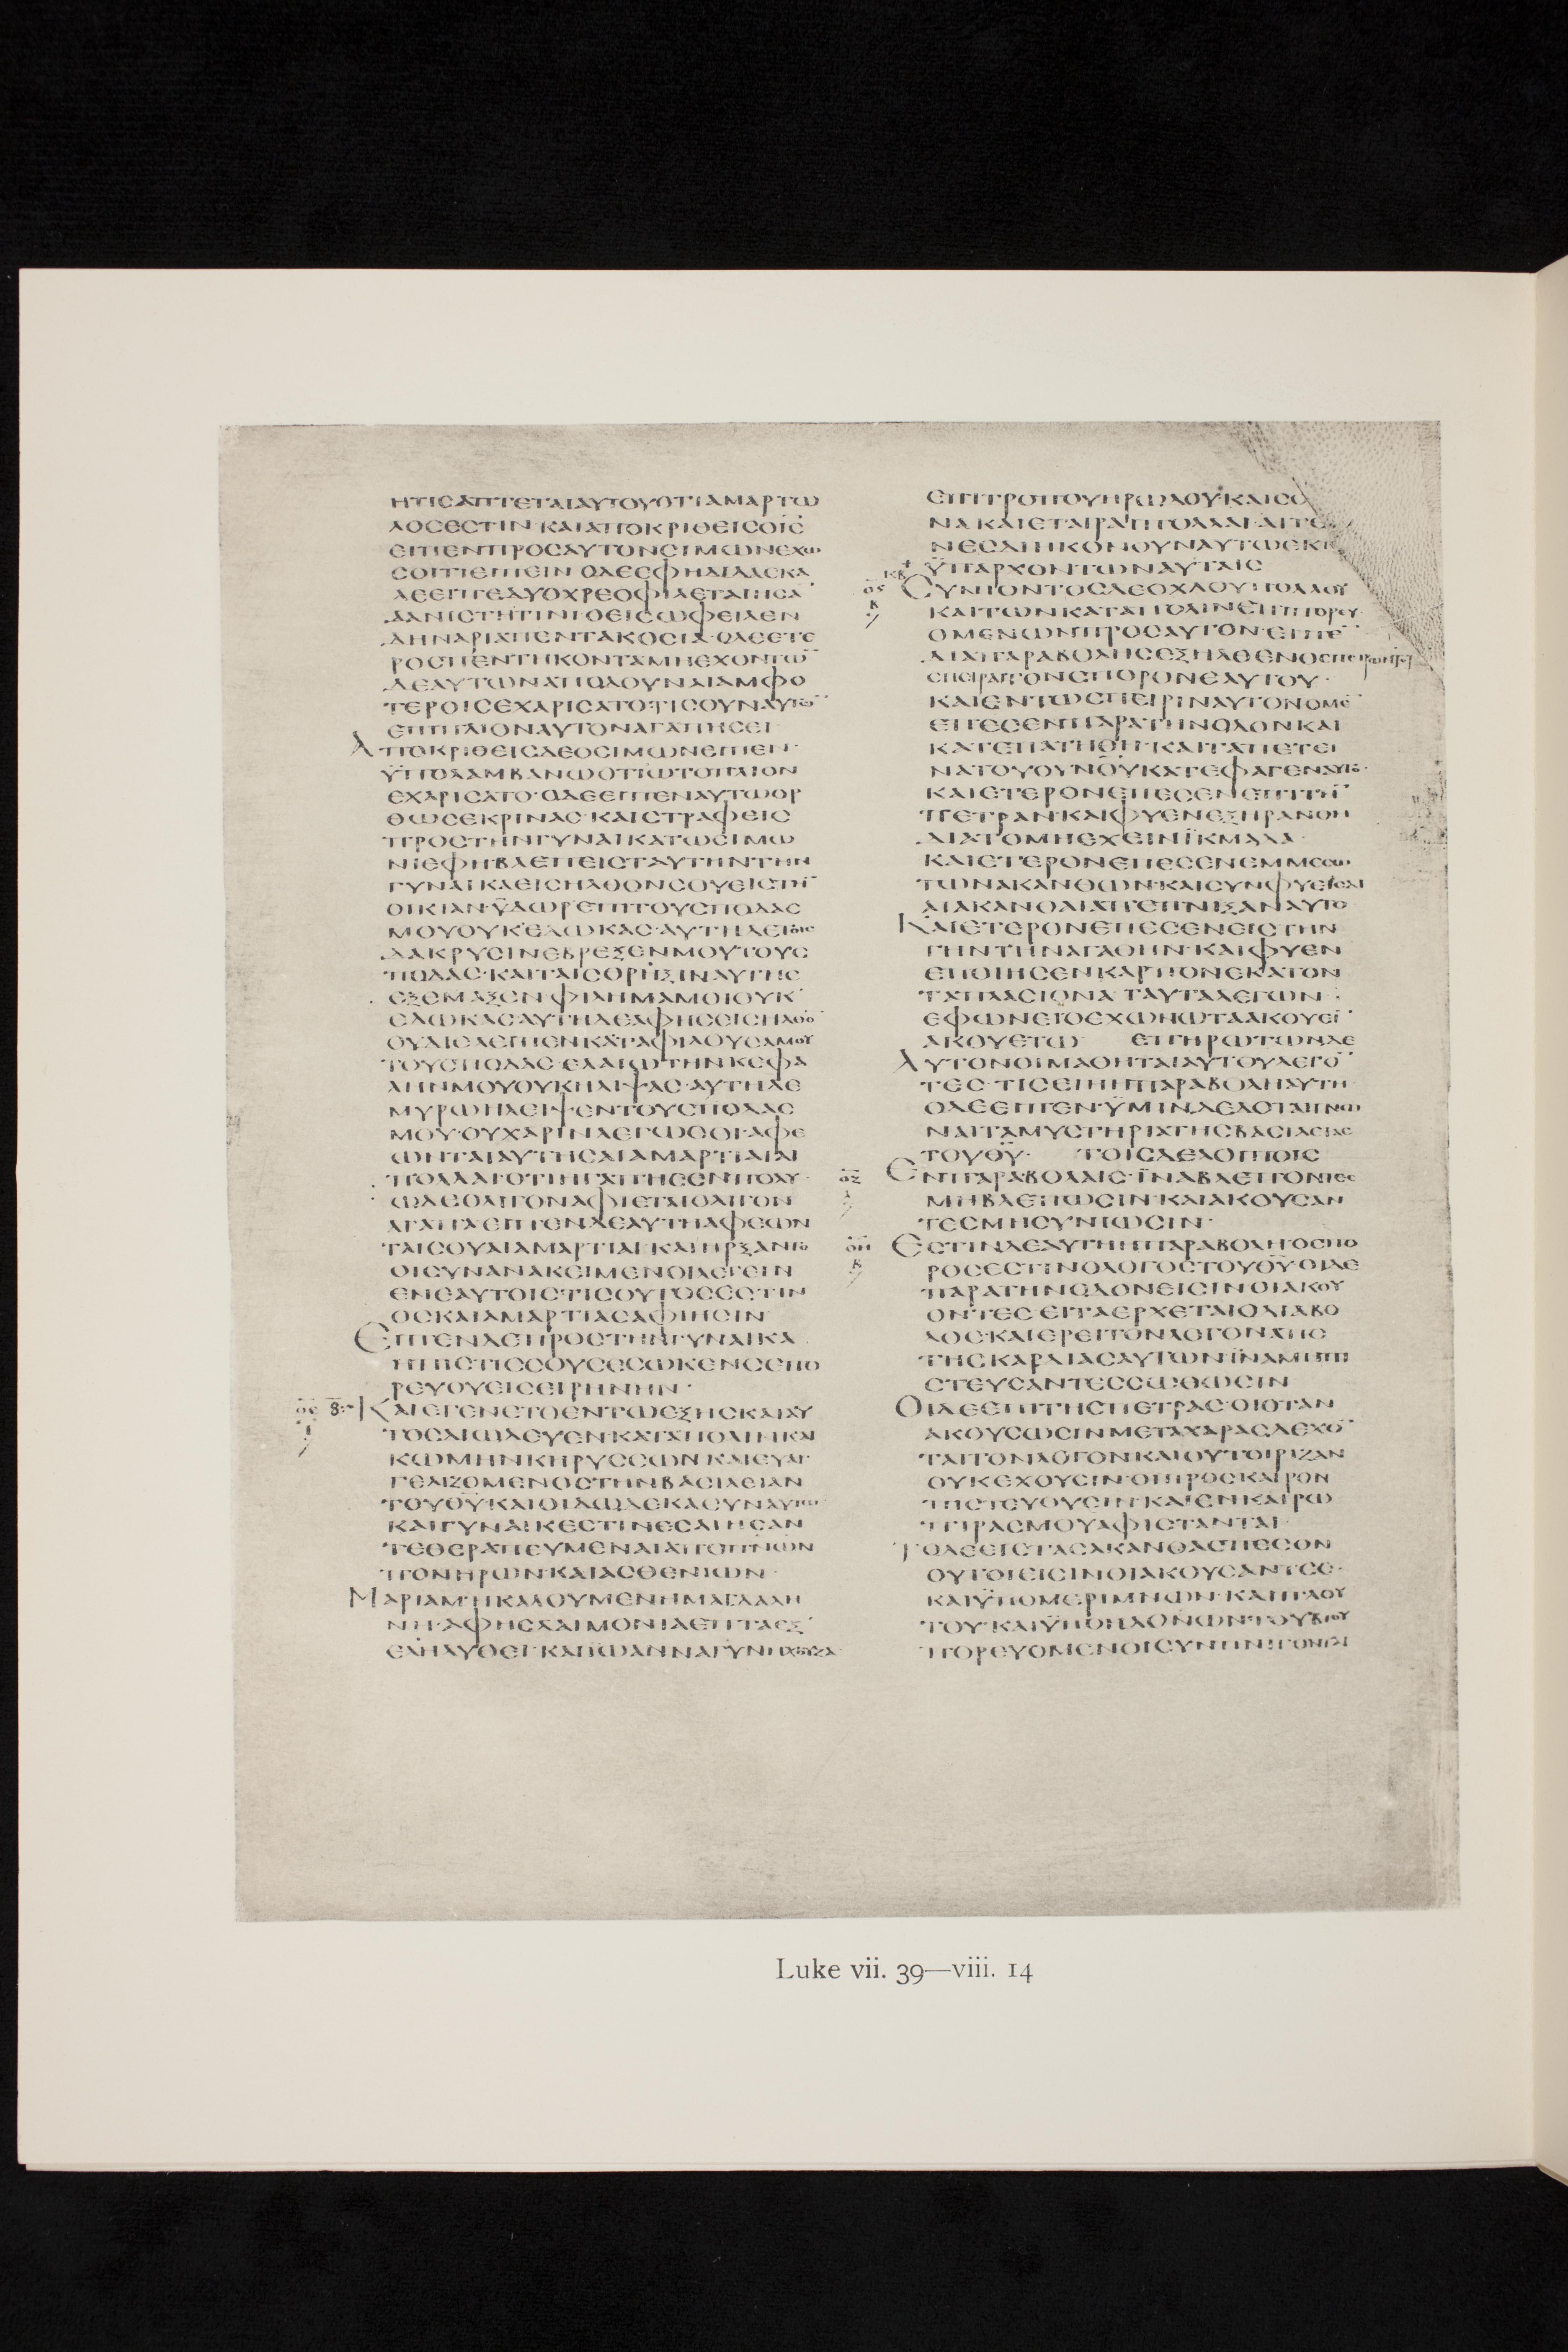 ΗΤΙΣΑΠΤΕΤΑΙΑΥΤΟΥΟΤΙΑΜΑΡΤΩ
ΛΟΣΕΣΤΙΝ·ΚΑΙΑΠΟΚΡΙΘΕΙΣΟΙΣ
ΕΙΠΕΝΠΡΟΣΑΥΤΟΝΣΙΜΩΝΕΧΩ
ΣΟΙΤΙΕΙΠΕΙΝ ΟΔΕΕΦΗΔΙΔΑΣΚΑ
ΛΕΕΙΠΕΔΥΟΧΡΕΟΦΙΛΕΤΑΙΗΣΑ
ΔΑΝΙΣΤΗΤΙΝΙΟΕΙΣΩΦΕΙΛΕΝ
ΔΗΝΑΡΙΑΠΕΝΤΑΚΟΣΙΑ·ΟΔΕΕΤΕ
ΡΟΣΠΕΝΤΗΚΟΝΤΑΜΗΕΧΟΝΤΩ
ΔΕΑΥΤΩΝΑΠΟΔΟΥΝΑΙΑΜΦΟ
ΤΕΡΟΙΣΕΧΑΡΙΣΑΤΟ·ΤΙΣΟΥΝΑΥΤΩ
ΕΠΙΠΛΙΟΝΑΥΤΟΝΑΓΑΠΗΣΕΙ
ΑΠΟΚΡΙΘΕΙΣΔΕΟΣΙΜΩΝΕΙΠΕΝ·
ΫΠΟΛΑΜΒΑΝΩΟΤΙΩΤΟΠΛΙΟΝ
ΕΧΑΡΙΣΑΤΟ·ΟΔΕΕΙΠΕΝΑΥΤΩΟΡ
ΘΩΣΕΚΡΙΝΑΣ·ΚΑΙΣΤΡΑΦΕΙΣ
ΠΡΟΣΤΗΝΓΥΝΑΙΚΑΤΩΣΙΜΩ
ΝΙΕΦΗΒΛΕΠΕΙΣΤΑΥΤΗΝΤΗΝ
ΓΥΝΑΙΚΑΕΙΣΗΛΘΟΝΣΟΥΕΙΣΤΗ
ΟΙΚΙΑΝ·ΫΔΩΡΕΠΙΤΟΥΣΠΟΔΑΣ
ΜΟΥΟΥΚΕΔΩΚΑΣ·ΑΥΤΗΔΕΤΟΙΣ
ΔΑΚΡΥΣΙΝΕΒΡΕΞΕΝΜΟΥΤΟΥΣ
ΠΟΔΑΣ·ΚΑΙΤΑΙΣΘΡΙΞΙΝΑΥΤΗΣ
ΕΞΕΜΑΞΕΝ ΦΙΛΗΜΑΜΟΙΟΥΚ
ΕΔΩΚΑΣΑΥΤΗΔΕΑΦΗΣΕΙΣΗΛΘΟ
ΟΥΔΙΕΛΕΙΠΕΝΚΑΤΑΦΙΛΟΥΣΑΜΟΥ
ΤΟΥΣΠΟΔΑΣ·ΕΛΑΙΩΤΗΝΚΕΦΑ
ΛΗΝΜΟΥΟΥΚΗΛΙΨΑΣ·ΑΥΤΗΔΕ
ΜΥΡΩΗΛΕΙΨΕΝΤΟΥΣΠΟΔΑΣ
ΜΟΥ·ΟΥΧΑΡΙΝΛΕΓΩΣΟΙ·ΑΦΕ
ΩΝΤΑΙΑΥΤΗΣΑΙΑΜΑΡΤΙΑΙΑΙ
ΠΟΛΛΑΙ·ΟΤΙΗΓΑΠΗΣΕΝΠΟΛΥ·
ΩΔΕΟΛΙΓΟΝΑΦΙΕΤΑΙΟΛΙΓΟΝ
ΑΓΑΠΑΕΙΠΕΝΔΕΑΥΤΗΑΦΕΩΝ
ΤΑΙΣΟΥΑΙΑΜΑΡΤΙΑΙ·ΚΑΙΗΡΞΑΝΤΟ
ΟΙΣΥΝΑΝΑΚΕΙΜΕΝΟΙΛΕΓΕΙΝ
ΕΝΕΑΥΤΟΙΣΤΙΣΟΥΤΟΣΕΣΤΙΝ
ΟΣΚΑΙΑΜΑΡΤΙΑΣΑΦΙΗΣΙΝ
ΕΙΠΕΝΔΕΠΡΟΣΤΗΝΓΥΝΑΙΚΑ
ΗΠΙΣΤΙΣΣΟΥΣΕΣΩΚΕΝΣΕΠΟ
ΡΕΥΟΥΕΙΣΕΙΡΗΝΗΝ·
ΚΑΙΕΓΕΝΕΤΟΕΝΤΩΕΞΗΣΚΑΙΑΥ
ΤΟΣΔΙΩΔΕΥΕΝ·ΚΑΤΑΠΟΛΙΝΚΑΙ
ΚΩΜΗΝΚΗΡΥΣΣΩΝΚΑΙΕΥΑΓ
ΓΕΛΙΖΟΜΕΝΟΣΤΗΝΒΑΣΙΛΕΙΑΝ
ΤΟΥΘΥ·ΚΑΙΟΙΔΩΔΕΚΑΣΥΝΑΥΤΩ
ΚΑΙΓΥΝΑΙΚΕΣΤΙΝΕΣΑΙΗΣΑΝ
ΤΕΘΕΡΑΠΕΥΜΕΝΑΙΑΠΟΠΝΩΝ
ΠΟΝΗΡΩΝ·ΚΑΙΑΣΘΕΝΙΩΝ·
ΜΑΡΙΑΜΗΚΑΛΟΥΜΕΝΗΜΑΓΔΑΛΗ
ΝΗ·ΑΦΗΣΔΑΙΜΟΝΙΑΕΠΤΑΕΞ
ΕΛΗΛΥΘΕΙ·ΚΑΙΪΩΑΝΝΑΓΥΝΗΧΟΥΖΑ
ΕΠΙΤΡΟΠΟΥΗΡΩΔΟΥ·ΚΑΙΣΟ
ΝΑΚΑΙΕΤΑΙΡΑΙΠΟΛΛΑΙ·ΑΙΤ
ΝΕΣΔΙΗΚΟΝΟΥΝΑΥΤΩΕΚ
ΫΠΑΡΧΟΝΤΩΝΑΥΤΑΙΣ
ΣΥΝΙΟΝΤΟΣΔΕΟΧΛΟΥΠΟΛΛΟΥ
ΚΑΙΤΩΝΚΑΤΑΠΟΛΙΝΕΠΙΠΟΡΕΥ
ΟΜΕΝΩΝΠΡΟΣΑΥΤΟΝ·ΕΙΠΕ
ΔΙΑΠΑΡΑΒΟΛΗΣΕΞΗΛΘΕΝΟΣΠΕΙΡΩΝΤΟΥ
ΣΠΕΙΡΑΙΤΟΝΣΠΟΡΟΝΕΑΥΤΟΥ·
ΚΑΙΕΝΤΩΣΠΕΙΡΙΝΑΥΤΟΝΟΜΕ
ΕΠΕΣΕΝΠΑΡΑΤΗΝΟΔΟΝΚΑΙ
ΚΑΤΕΠΑΤΗΘΗ·ΚΑΙΤΑΠΕΤΕΙ
ΝΑΤΟΥΟΥΝΟΥΚΑΤΕΦΑΓΕΝΑΥΤΟ·
ΚΑΙΕΤΕΡΟΝΕΠΕΣΕΝΕΠΙΤΗ
ΠΕΤΡΑΝ·ΚΑΙΦΥΕΝΕΞΗΡΑΝΘΗ
ΔΙΑΤΟΜΗΕΧΕΙΝΪΚΜΑΔΑ·
ΚΑΙΕΤΕΡΟΝΕΠΕΣΕΝΕΜΜΕΣΩ
ΤΩΝΑΚΑΝΘΩΝ·ΚΑΙΣΥΝΦΥΕΙΣΑΙ
ΑΙΑΚΑΝΘΑΙΑΠΕΠΝΙΞΑΝΑΥΤΟ
ΚΑΙΕΤΕΡΟΝΕΠΕΣΕΝΕΙΣΤΗΝ
ΓΗΝΤΗΝΑΓΑΘΗΝ·ΚΑΙΦΥΕΝ
ΕΠΟΙΗΣΕΝΚΑΡΠΟΝΕΚΑΤΟΝ
ΤΑΠΛΑΣΙΟΝΑ ΤΑΥΤΑΛΕΓΩΝ·
ΕΦΩΝΕΙΟΕΧΩΝΩΤΑΑΚΟΥΕΙ
ΑΚΟΥΕΤΩ ΕΠΗΡΩΤΩΝΔΕ
ΑΥΤΟΝΟΙΜΑΘΗΤΑΙΑΥΤΟΥΛΕΓΟ
ΤΕΣ·ΤΙΣΕΙΗΗΠΑΡΑΒΟΛΗΑΥΤΗ
ΟΔΕΕΙΠΕΝ·ΫΜΙΝΔΕΔΟΤΑΙΓΝΩ
ΝΑΙΤΑΜΥΣΤΗΡΙΑΤΗΣΒΑΣΙΛΕΙΑΣ
ΤΟΥΘΥ· ΤΟΙΣΔΕΛΟΙΠΟΙΣ
ΕΝΠΑΡΑΒΟΛΑΙΣ·ΪΝΑΒΛΕΠΟΝΤΕΣ
ΜΗΒΛΕΠΩΣΙΝ·ΚΑΙΑΚΟΥΣΑΝ
ΤΕΣΜΗΣΥΝΙΩΣΙΝ·
ΕΣΤΙΝΔΕΑΥΤΗΗΠΑΡΑΒΟΛΗ·ΟΣΠΟ
ΡΟΣΕΣΤΙΝΟΛΟΓΟΣΤΟΥΘΥΟΙΔΕ
ΠΑΡΑΤΗΝΟΔΟΝΕΙΣΙΝΟΙΑΚΟΥ
ΟΝΤΕΣ ΕΙΤΑΕΡΧΕΤΑΙΟΔΙΑΒΟ
ΛΟΣ·ΚΑΙΕΡΕΙΤΟΝΛΟΓΟΝΑΠΟ
ΤΗΣΚΑΡΔΙΑΣΑΥΤΩΝΪΝΑΜΗΠΙ
ΣΤΕΥΣΑΝΤΕΣΣΩΘΩΣΙΝ
ΟΙΔΕΕΠΙΤΗΣΠΕΤΡΑΣ·ΟΙΟΤΑΝ
ΑΚΟΥΣΩΣΙΝΜΕΤΑΧΑΡΑΣΔΕΧΟ
ΤΑΙΤΟΝΛΟΓΟΝΚΑΙΟΥΤΟΙΡΙΖΑΝ
ΟΥΚΕΧΟΥΣΙΝ·ΟΙΠΡΟΣΚΑΙΡΟΝ
ΠΙΣΤΕΥΟΥΣΙΝ·ΚΑΙΕΝΚΑΙΡΩ
ΠΙΡΑΣΜΟΥΑΦΙΣΤΑΝΤΑΙ·
ΤΟΔΕΕΙΣΤΑΣΑΚΑΝΘΑΣΠΕΣΟΝ
ΟΥΤΟΙΕΙΣΙΝΟΙΑΚΟΥΣΑΝΤΕΣ·
ΚΑΙΫΠΟΜΕΡΙΜΝΩΝ·ΚΑΙΠΛΟΥ
ΤΟΥ·ΚΑΙΫΠΟΗΔΟΝΩΝΤΟΥΒΙΟΥ
ΠΟΡΕΥΟΜΕΝΟΙΣΥΝΠΝΙΓΟΝΤΑΙ
Luke vii. 39—viii. 14